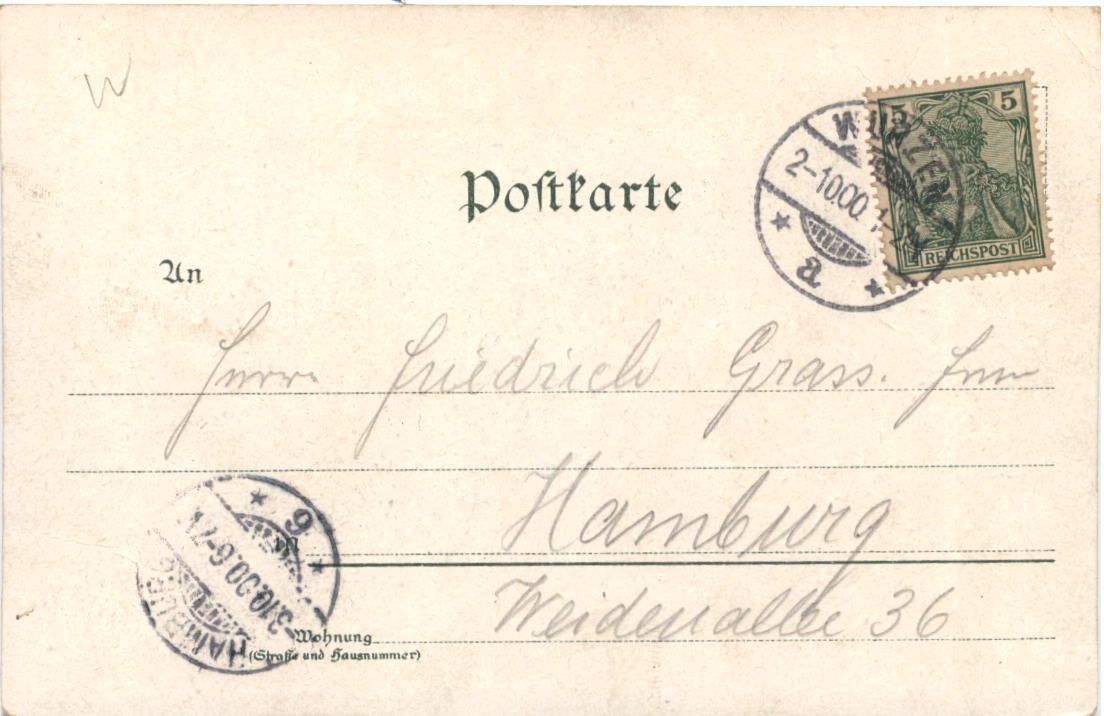 W
5 5
WURZEN
2-10 00
a
REICHSPOST
Postkarte
An
Herrn Friedrich Grass. Jun
Hamburg
Weidenallee 36
HAMBURG
-3.10.00.6-7
9
Wohnung
(Straße und Hausnummer)